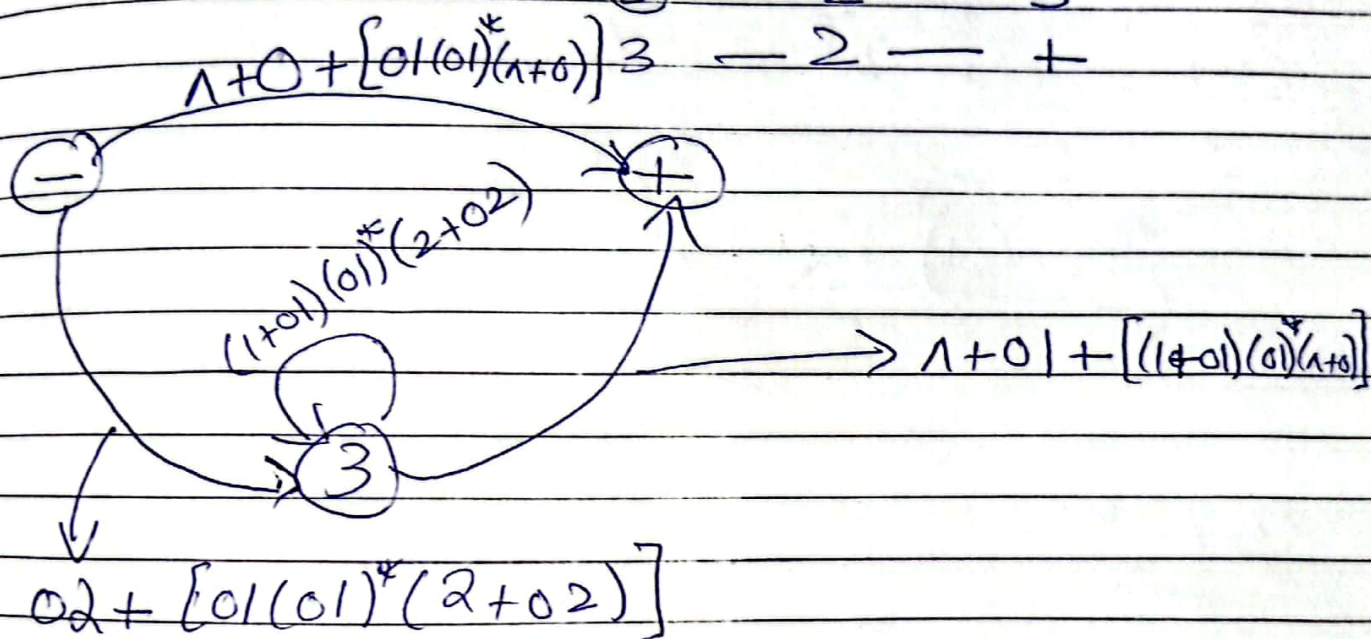 Λ+0+[01(01)*(Λ+0)] 3 — 2 — +
− +
(1+01)(01)*(2+02)
Λ+01+[(1+01)(01)*(Λ+0)]
3
02+[01(01)*(2+02)]